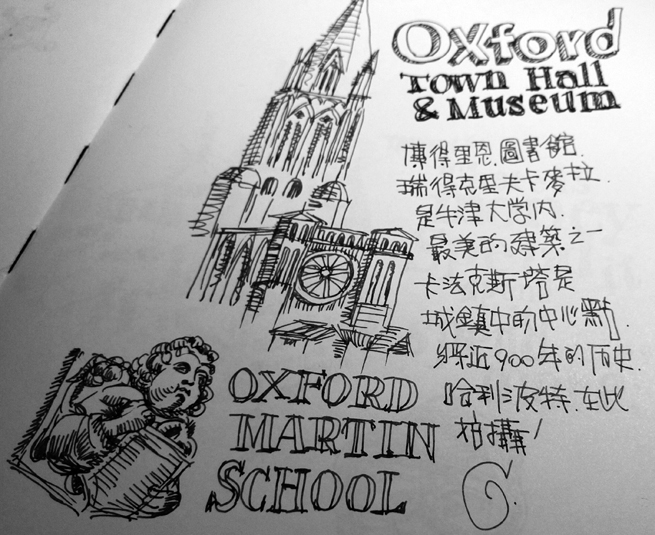 Oxford
Town Hall
& Museum
博得里恩圖書館.
瑞得克里夫卡麥拉.
是牛津大学內.
最美的建築之一
卡法克斯塔是
城鎮中的中心點.
將近900年的历史.
哈利波特.在此
拍攝!
OXFORD
MARTIN
SCHOOL